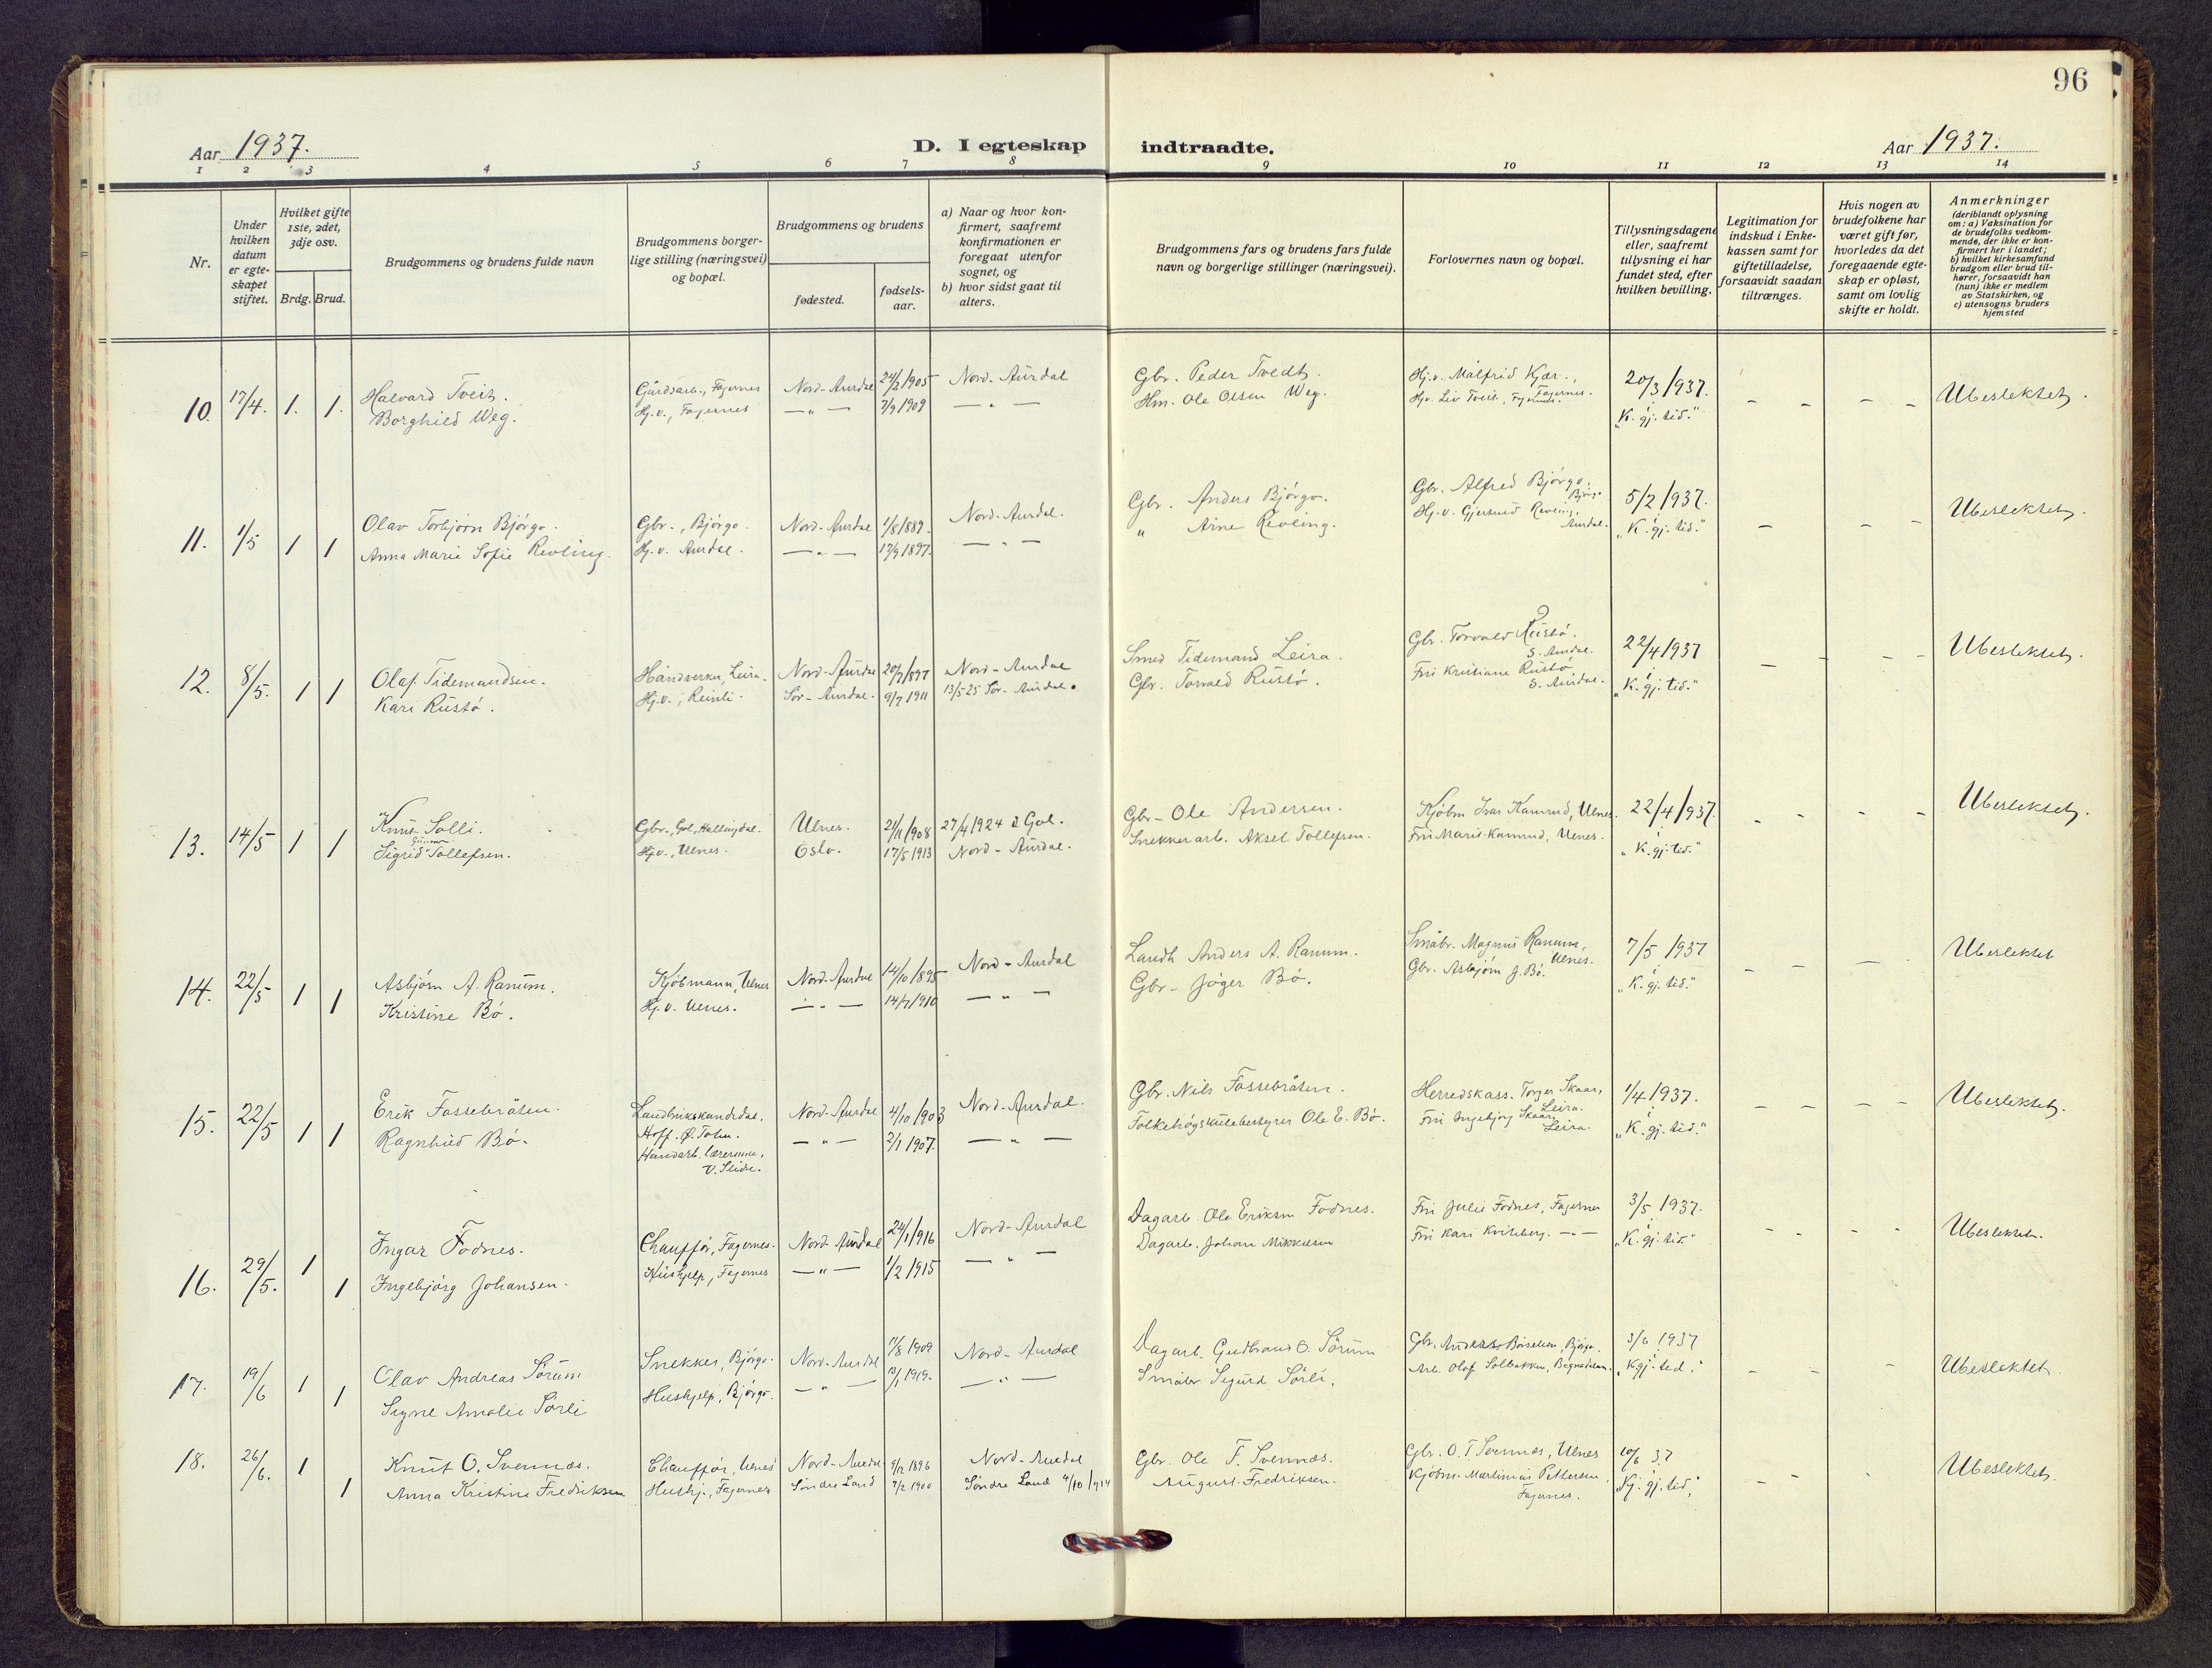 96
Aar 1937.
D. I egteskap indtraadte.
Aar 1937.
1 2 3 4 5 6 7 8 9 10 11 12 13 14
Nr.
Under hvilken datum er egteskapet stiftet.
Hvilket gifte 1ste, 2det, 3dje osv.
Brdg. Brud.
Brudgommens og brudens fulde navn
Brudgommens borgerlige stilling (næringsvei) og bopæl.
Brudgommens og brudens
fødested.
fødselsaar.
a) Naar og hvor konfirmert, saafremt konfirmationen er foregaat utenfor sognet, og
b) hvor sidst gaat til alters.
Brudgommens fars og brudens fars fulde navn og borgerlige stillinger (næringsvei).
Forlovernes navn og bopæl.
Tillysningsdagene eller, saafremt tillysning ei har fundet sted, efter hvilken bevilling.
Legitimation for indskud i Enkekassen samt for giftetilladelse, forsaavidt saadan tiltrænges.
Hvis nogen av brudefolkene har været gift før, hvorledes da det foregaaende egteskap er opløst, samt om lovlig skifte er holdt.
Anmerkninger
(deriblandt oplysning om: a) Vaksination for de brudefolks vedkommende, der ikke er konfirmert her i landet; b) hvilket kirkesamfund brudgom eller brud tilhører, forsaavidt han (hun) ikke er medlem av Statskirken, og c) utensogns bruders hjemsted
10. 17/4. 1. 1. Halvard Tveit. Gårdsarb., Fagernes Nord-Aurdal 24/2 1905 Nord-Aurdal Gbr. Peder Tvedt. Hj.v. Målfrid Kjær., Fagernes. 20/3/1937. - - - - Ubeslektet.
Borghild Weg. Hj.v., Fagernes — " — 7/9 1909 — " — Hm. Ole Olsen Weg. Hj.v. Liv Tveit, Fagernes. i "K. gj. tid."
11. 1/5 1 1 Olav Torbjørn Bjørgo. Gbr., Bjørgo. Nord-Aurdal 1/8 1889. Nord-Aurdal. Gbr. Anders Bjørgo. Gbr. Alfred Bjørgo, Bjørgo 5/2 1937. - - - Ubeslektet.
Anna Marie Sofie Revling. Hj.v. Aurdal. — " — 17/9 1897. — " — " Arne Revling. Hj.v. Gjertrud Revling, Aurdal. i "K. gj. tid."
12. 8/5. 1 1 Olaf Tidemandsen. Håndverker, Leira. Nord-Aurdal 20/7 1897 Nord-Aurdal Smed Tidemand Leira. Gbr. Torvald Rustø. S. Aurdal. 22/4 1937 - - - - Ubeslektet.
Kari Rustø. Hj.v., Reinli. Sør-Aurdal. 9/7 1911 13/5 25 Sør-Aurdal. Gbr. Torvald Rustø. Fru Kristiane Rustø S. Aurdal. i "K. gj. tid."
13. 14/5 1 1 Knut Solli. Gbr., Gol, Hallingdal. Ulnes. 21/11 1908 27/4 1924 i Gol. Gbr. Ole Andersen. Kjøbm Ivar Kamrud, Ulnes. 22/4/1937. - - - - Ubeslektet.
Sigrid Tollefsen. Hj.v., Ulnes. Oslo. 17/5 1913 Nord-Aurdal. Snekkerarb. Aksel Tollefsen. Fru Marit Kamrud, Ulnes. i "K. gj. tid."
14. 22/5 1 1 Asbjørn A. Ranum. Kjøbmann, Ulnes Nord-Aurdal 14/10 1895 Nord-Aurdal Landh Anders A. Ranum. Småbr. Magnus Ranum, Ulnes. 7/5 1937 - - - Ubeslektet
Kristine Bø. Hj.v. Ulnes. — " — 14/7 1910 — " — Gbr. Jøger Bø. Gbr. Asbjørn J. Bø. i "K. gj. tid."
15. 22/5 1 1 Erik Fossebråten. Landbrukskandidat, Hoff. Ø. Toten. Nord-Aurdal 4/10 1903 Nord-Aurdal. Gbr. Nils Fossebråten. Herredskass. Torger Skaar, Leira. 1/4 1937. - - - - Ubeslektet.
Ragnhild Bø. Handarb. lærerinne, V. Slidre. — " — 2/1 1907. — " — Folkehøgskulebestyrer Ole E. Bø. Fru Ingebjørg Skaar, Leira. i "K. gj. tid."
16. 29/5. 1 1 Ingar Fodnes. Chauffør, Fagernes. Nord-Aurdal 24/1 1916 Nord-Aurdal Dagarb. Ole Eriksen Fodnes. Fru Julie Fodnes, Fagernes 3/5 1937. - - - - Ubeslektet.
Ingebjørg Johansen. Hushjelp, Fagernes — " — 1/2 1915 — " — Dagarb. Johan Mikkelsen Fru Kari Kvitberg. — " — i "K. gj. tid."
17. 19/6 1 1 Olav Andreas Sørum Snekker, Bjørgo. Nord-Aurdal 11/8 1909 Nord-Aurdal Dagarb. Gudbrand O. Sørum Gbr. Anders Børselien, Bjørgo. 3/6 1937 - - - - Ubeslektet.
Signe Amalie Sørli Hushjelp, Bjørgo. — " — 1919. — " — Småbr Sigurd Sørli. Arb. Olaf Solbakken, Begnadalen. i "K gj. tid."
18. 26/6. 1 1 Knut O. Svennes. Chauffør, Ulnes Nord-Aurdal 9/12 1896 Nord-Aurdal Gbr. Ole T. Svennes. Gbr. O. T Svennes, Ulnes 10/6 37 - - - Ubeslektet.
Anna Kristine Fredriksen Hushj., Fagernes Søndre Land 7/2 1900 Søndre Land 4/10 1914 August Fredriksen. Kjøbm. Martinius Pettersen, Fagernes. i "Kj. gj. tid."